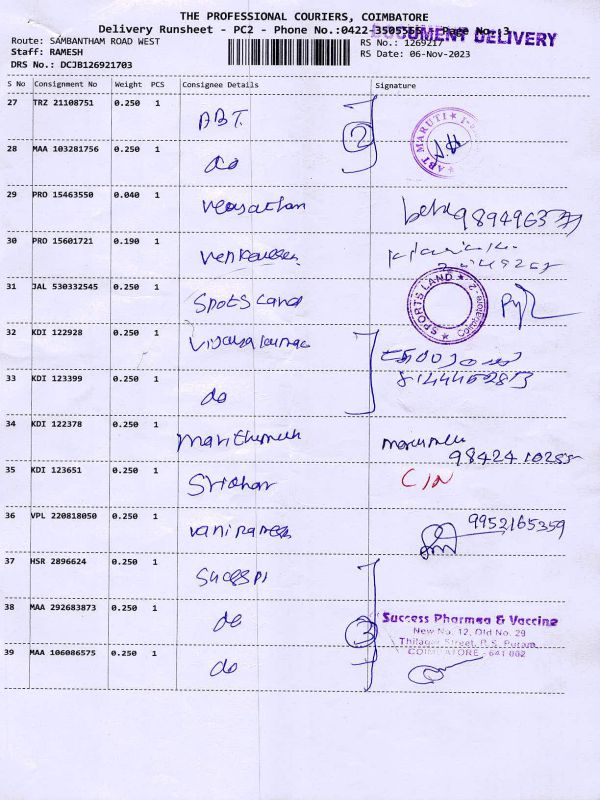 THE PROFESSIONAL COURIERS, COIMBATORE
Delivery Runsheet - PC2 - Phone No.:0422-3505555 Page No.:3
DOCUMENT DELIVERY
Route: SAMBANTHAM ROAD WEST
RS No.: 1269217
Staff: RAMESH
RS Date: 06-Nov-2023
DRS No.: DCJB126921703
S No Consignment No Weight PCS Consignee Details Signature
27 TRZ 21108751 0.250 1 ABT
ABT MARUTI
2
28 MAA 103281756 0.250 1 do
29 PRO 15463550 0.040 1
30 PRO 15601721 0.190 1
31 JAL 530332545 0.250 1 Spots Land
SPORTS LAND
32 KDI 122928 0.250 1
33 KDI 123399 0.250 1 do
34 KDI 122378 0.250 1
98424 10255
35 KDI 123651 0.250 1 Sridhar
36 VPL 220818050 0.250 1
9952165359
37 HSR 2896624 0.250 1
38 MAA 292683873 0.250 1 do
3
Success Pharmaa & Vaccine
New No. 12, Old No. 29
Thilagar Street, P. S. Puram,
COIMBATORE - 641 002
39 MAA 106086575 0.250 1 do